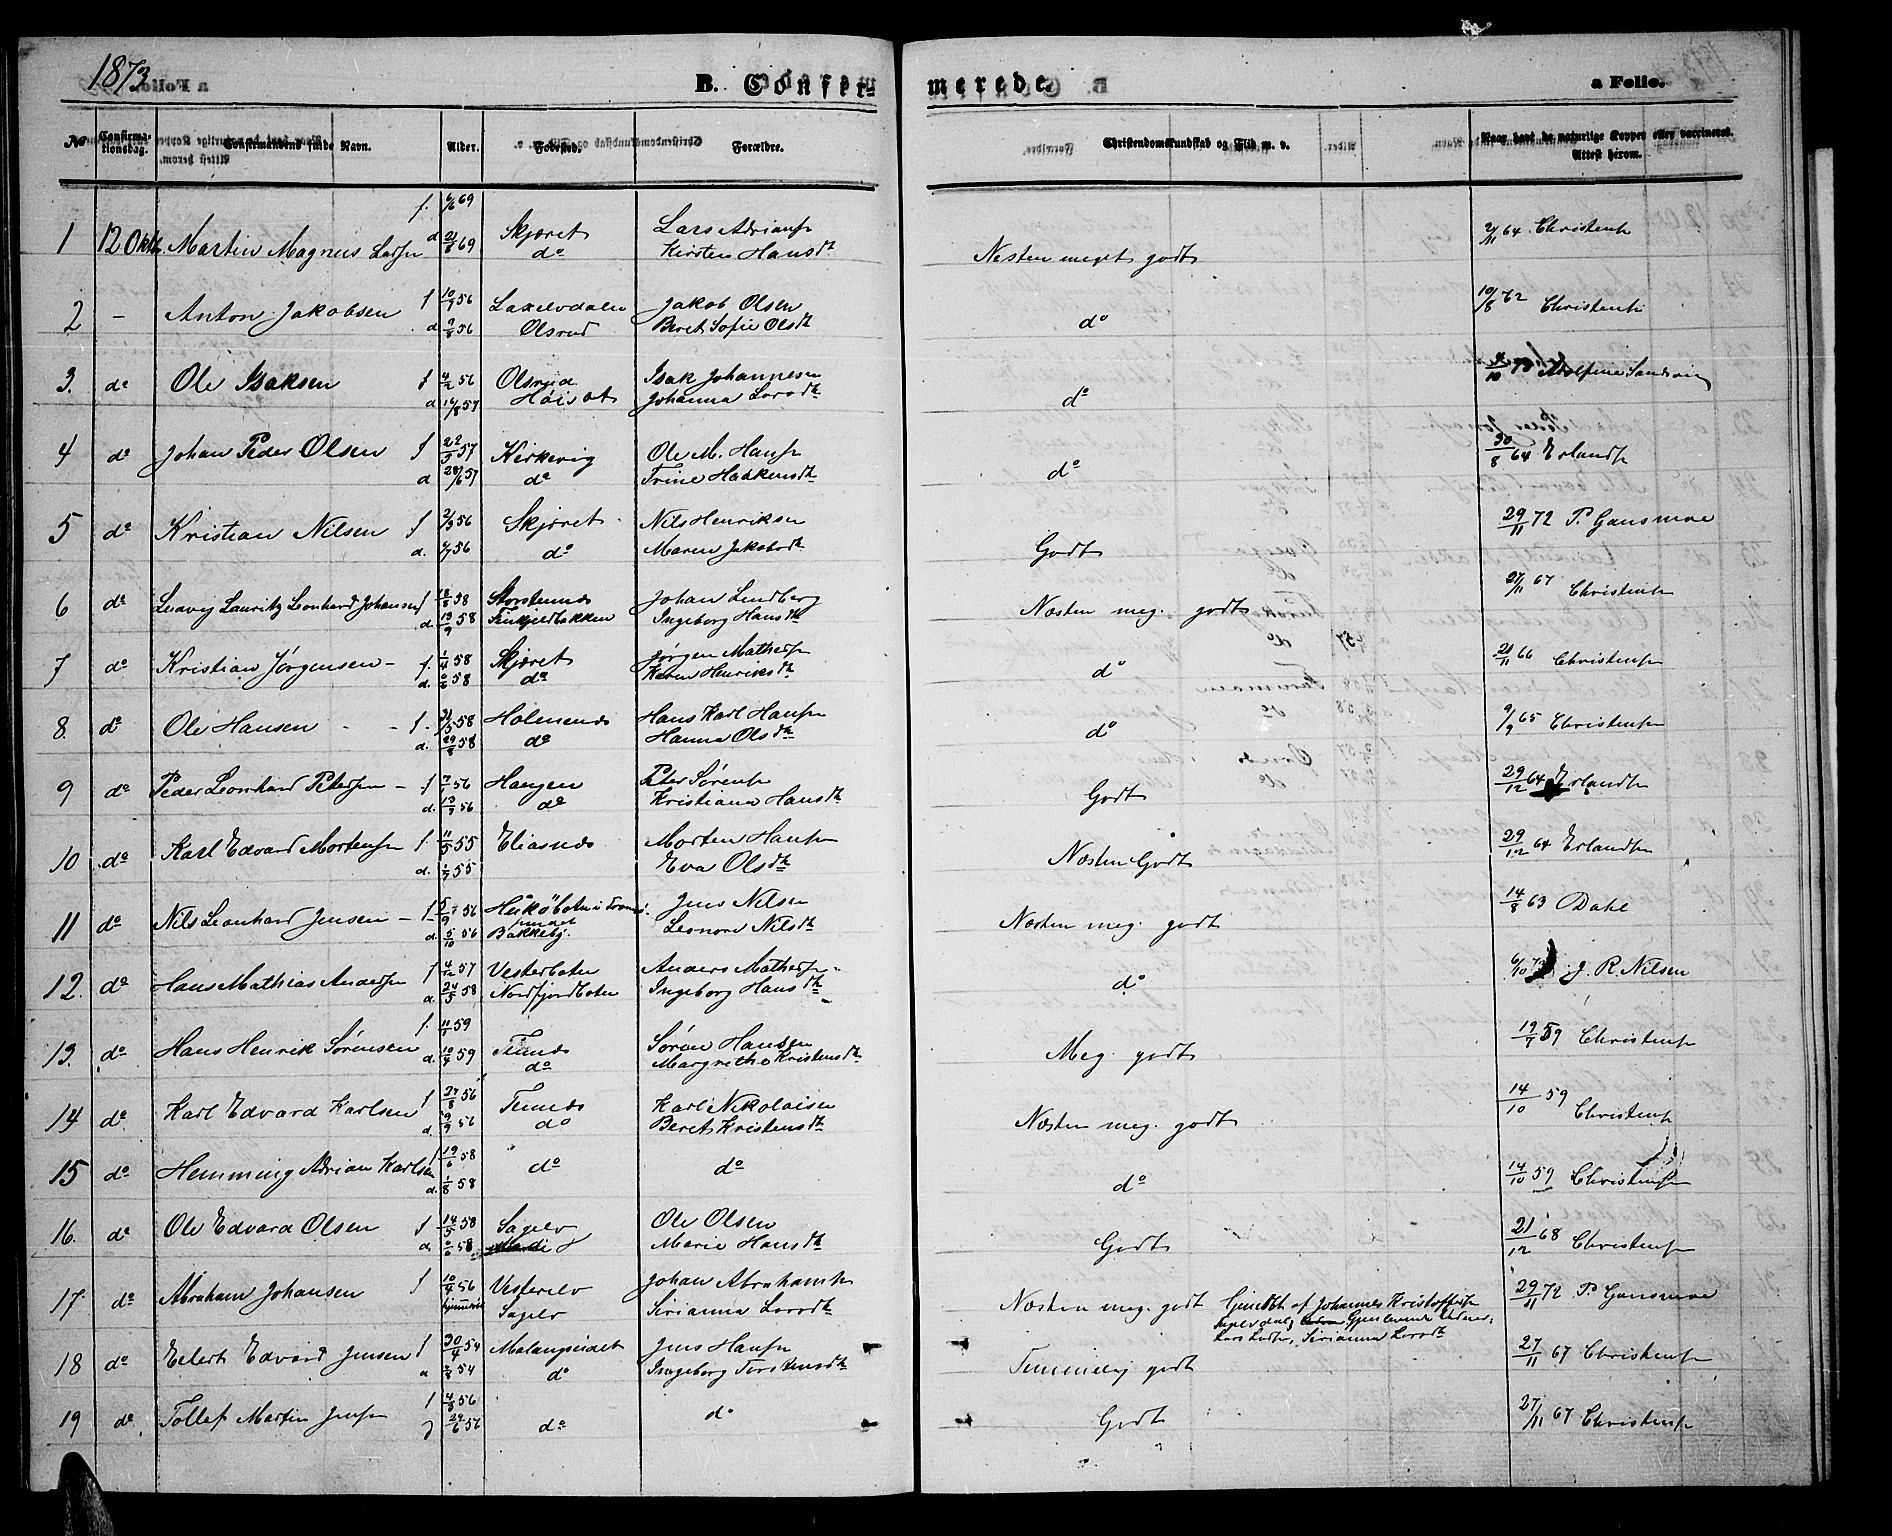 1873
B. Confirmerede. a Folio.
No Confirmationsdag. Confirmandens fulde Navn. Alder. Fødested. Forældre. Christendomskundskab og Flid m. v. Naar havt de naturlige Kopper eller vaccineret. Attest herom.
f. 6/6 69
1 12 Oktb. Martin Magnus Larsen d 21/8 69 Skjæret do Lars Adrians Kirsten Hansdt Nesten meget godt 2/11 64 Christens
2 - Anton Jakobsen f 10/7 56 d. 3/8 56 Laxelvdalen Olsrud Jakob Olsen Beret Sofie Olsdt do 10/8 62 Christens
3. do Ole Isaksen f 4/2 56 d 14/8 57 Olsrud Isak Johannesen Johanna Larsdt do 4/10 73 Adolfine Sandvig
4 do Johan Peder Olsen f 22/5 57 d 28/6 57 Kirkevig do Ole M. Hans Trine Haakensdt do 30/8 64 Erlands
5 do Kristian Nilsen f 2/3 56 d. 6/7 56 Skjæret do Nils Henriksen Maren Jakobsdt Godt 29/11 72 P. Gansmoe
6 do Ludvig Lauritz Leonhard Johansen f 18/8 58 d. 19/9 58 Storstennes Johan Lindberg Ingeborg Hansdt Næsten meg. godt 27/11 67 Christens
7 do Kristian Jørgensen - f. 1/4 58 d. 6/6 58 Skjæret do Jørgen Mathes Karen Henriksdt do 21/11 66 Christens
8. do Ole Hansen - - f. 31/5 58 d. 29/8 58 Holmenes do Hans Karl Hans Hanna Olsdt do 9/9 65 Christens
9 do Peder Leonhard Petersen - f 7/1 56 d. 13/7 56 Haugen do Peter Sørens Kristiana Hansdt Godt 29/12 64 Erlands
10 do Karl Edvard Mortens f 11/5 55 d. 1/7 55 Eliasnes Morten Hans Eva Olsdt Næsten Godt 29/12 64 Erlands
11 do Nils Leonhard Jensen - f 5/9 56 d. 5/10 56 Bakkeby. Jens Nilsen Leonore Nilsdt Næsten meg. godt 14/8 63 Dahl
12. do Hans Mathias Anders f 4/12 57 d. 24/5 58 Vesterboten Nordfjordboten Anders Mathes Ingeborg Hansdt do 6/10 73 J. R. Nilsen
13. do Hans Henrik Sørensen f. 11/1 59 d. 10/4 59 Tennes do Søren Hansen Margrethe Kristensdt Meg. godt 19/7 59 Christens
14 do Karl Edvard Karlsen f 27/8 56 d. 9/9 56 Tennes do Karl Nikolaisen Beret Kristensdt Næsten meg. godt 14/10 59 Christens
15 do Hemming Adrian Karlsen f 19/6 58 d. 1/8 58 do do do 14/10 59 Christens
16. do Ole Edvard Olsen f 14/5 58 d. 6/6 58 Sagelv Ole Olsen Marie Hansdt Godt 21/12 68 Christens
17. do Abraham Johansen f 10/4 56 hjemmed. Vesterelv Sagelv Johan Abrahams Sirianna Larsdt Næsten meg. godt 29/11 72 P. Gansmoe
18 do Eilert Edvard Jensen f 30/4 54 d 6/8 54 Malangseidet do Jens Hans Ingeborg Torstensdt Temmelig godt 27/11 67 Christens
19 do Tollef Martin Jens f 4/5 56 d 29/6 56 do do Godt 27/11 67 Christens